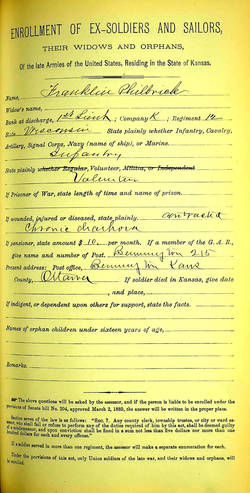 ENROLLMENT OF EX-SOLDIERS AND SAILORS,
THEIR WIDOWS AND ORPHANS,
Of the late Armies of the United States, Residing in the State of Kansas.
Name, Franklin Philbrick
Widow's name,
Rank at discharge, 1st Lieut; Company K; Regiment 12
State Wisconsin State plainly whether Infantry, Cavalry,
Artillery, Signal Corps, Navy (name of ship), or Marine.
Infantry
State plainly whether Regular, Volunteer, Militia, or Independent
Volunteer
If Prisoner of War, state length of time and name of prison.
If wounded, injured or diseased, state plainly. contracted
Chronic diarhoea
If pensioner, state amount $10. per month. If a member of the G. A. R.,
give name and number of Post. Bennington 215
Present address: Post office, Bennington Kans
County, Ottawa If soldier died in Kansas, give date
, and place,
If indigent, or dependent upon others for support, state the facts.
Names of orphan children under sixteen years of age,
Remarks.
The above questions will be asked by the assessor, and if the person is liable to be enrolled under the
provisions of Senate bill No. 204, approved March 2, 1889, the answer will be written in the proper place.
Section seven of the law is as follows: "Sec. 7. Any county clerk, township trustee, or city or ward as-
sessor, who shall fail or refuse to perform any of the duties required of him by this act, shall be deemed guilty
of a misdemeanor, and upon conviction shall be fined in a sum not less than five dollars nor more than one
hundred dollars for each and every offense."
If a soldier served in more than one regiment, the assessor will make a separate enumeration for each.
Under the provisions of this act, only Union soldiers of the late war, and their widows and orphans, will
be enrolled.